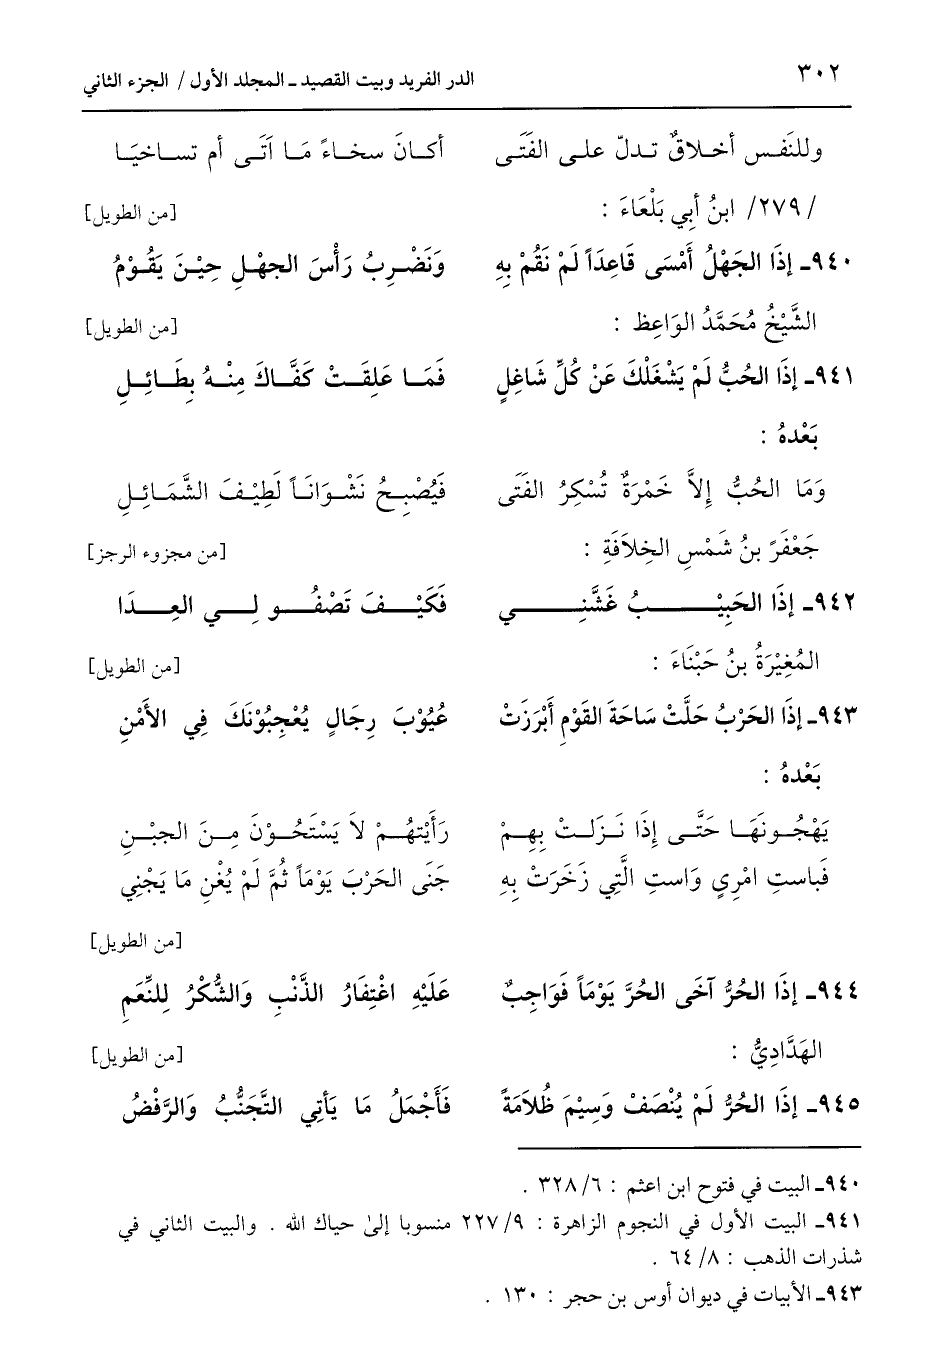 ٣٠٢ الدر الفريد وبيت القصيد ـ المجلد الأول / الجزء الثاني
وللنَفس أخلاقٌ تدلّ على الفَتَى أكانَ سخاءً مَا اَتَى أم تساخيَا
/٢٧٩/ ابنُ أبي بَلْعَاءَ : [من الطويل]
٩٤٠ـ إذَا الجَهْلُ أمْسَى قَاعِدَاً لَمْ نَقُمْ بِهِ وَنَضْرِبُ رَأْسَ الجهْلِ حِيْنَ يَقُوْمُ
الشَّيْخُ مُحَمَّدُ الوَاعِظ : [من الطويل]
٩٤١ـ إذَا الحُبُّ لَمْ يَشْغَلْكَ عَنْ كُلِّ شَاغِلٍ فَمَا عَلِقَتْ كَفَّاكَ مِنْهُ بِطَائِلِ
بَعْدهُ :
وَمَا الحُبُّ إلاَّ خَمْرَةٌ تُسْكِرُ الفَتَى فَيُصْبِحُ نَشْوَانَاً لَطِيْفَ الشَّمَائِلِ
جَعْفَرَ بنُ شَمْسِ الخِلاَفَةِ : [من مجزوء الرجز]
٩٤٢ـ إذَا الحَبِيْبُ غَشَّنِي فَكَيْفَ تَصْفُو لِي العِدَا
المُغِيْرَةُ بنُ حَبْنَاءَ : [من الطويل]
٩٤٣ـ إذَا الحَرْبُ حَلَّتْ سَاحَةَ القَوْمِ أبْرَزَتْ عُيُوْبَ رِجَالٍ يُعْجِبُوْنَكَ فِي الأَمْنِ
بَعْدهُ :
يَهْجُونَهَا حَتَّى إذَا نَزَلَتْ بِهِمْ رَأَيْتهُمْ لاَ يَسْتَحُوْنَ مِنَ الجبْنِ
فَباستِ امْرِي وَاستِ الَّتِي زَخَرَتْ بِهِ جَنَى الحَرْبَ يَوْمَاً ثُمَّ لَمْ يُغْنِ مَا يَجْنِي
[من الطويل]
٩٤٤ـ إذَا الحُرُّ آخَى الحُرَّ يَوْمَاً فَوَاجِبٌ عَلَيْهِ اغْتِفَارُ الذَّنْبِ وَالشُّكْرُ لِلنِّعَمِ
الهَدَّادِيُّ : [من الطويل]
٩٤٥ـ إذَا الحُرُّ لَمْ يُنْصَفْ وَسِيْمَ ظُلاَمَةً فَأَجْمَلُ مَا يَأتِي التَّجَنُّبُ وَالرَّفْضُ
٩٤٠ـ البيت في فتوح ابن اعثم : ٣٢٨/٦ .
٩٤١ـ البيت الأول في النجوم الزاهرة : ٢٢٧/٩ منسوبا إلىٰ حياك الله . والبيت الثاني في
شذرات الذهب : ٦٤/٨ .
٩٤٣ـ الأبيات في ديوان أوس بن حجر : ١٣٠ .